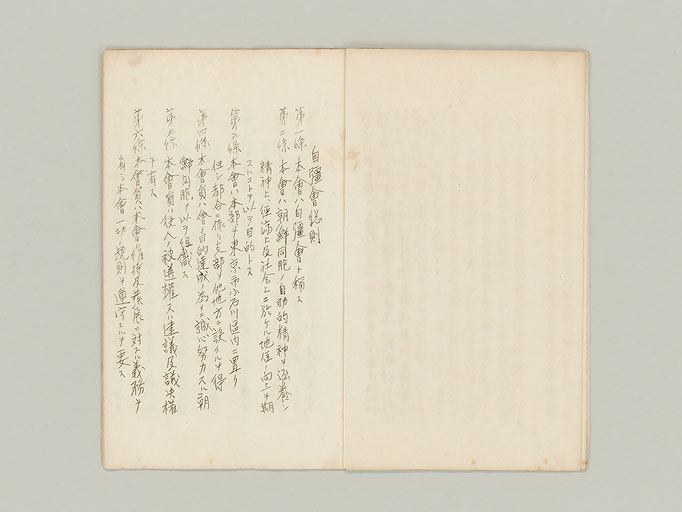 自彊會総則
第一條 本會ハ自彊會ト稱ス
第二條 本會ハ朝鮮同胞ノ自助的精神ヲ涵養シ
精神上、經済上及社会上ニ於ケル地位ノ向上ヲ期
スルコトヲ以テ目的トス
第三條 本會ハ本部ヲ東京市小石川區内ニ置ク
但シ部合ニ依リ支部ヲ他地方ニ設クルヲ得
第四條 本會員ハ會ノ目的達成ノ為メニ誠心努力スル朝
鮮同胞ヲ以テ組織ス
第五條 本會員ハ役人ノ被選權又ハ建議及議决權
ヲ有ス
第六條 本會員ハ本會ノ維持及發展ニ対スル義務ヲ
有シ本會一切ノ規則ヲ遵守スルヲ要ス